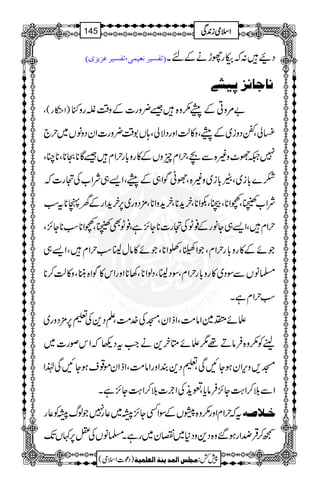 اسلامی زندگی
145
دیئے ہیں نہ کہ بیکار چھوڑنے کے لئے۔ (تفسیر نعیمی، تفسیر عزیزی)
ناجائز پیشے
بے مروتی کے پیشے مکروہ ہیں جیسے ضرورت کے وقت غلہ روکنا (احتکار)،
غسالی، کفن دوزی کے پیشے، وکالت اور دلالی، ہاں بوقتِ ضرورت ان دونوں میں حرج
نہیں جبکہ جھوٹ وغیرہ سے بچے، حرام چیزوں کے کاروبار حرام ہیں جیسے گانا، بجانا، ناچنا،
شکرے بازی، بٹیر بازی وغیرہ، جھوٹی گواہی کے پیشے، ایسے ہی شراب کی تجارت کہ
شراب کھینچنا، کھچوانا، بیچنا، بکوانا، خریدنا، خریدوانا، مزدوری پر خریدار کے گھر پہنچانا یہ سب
حرام ہیں، ایسے ہی جاندار کے فوٹو کی تجارت ناجائز ہے، فوٹو بھی کھینچنا، کھچوانا سب ناجائز،
جوئے کے کاروبار حرام، جوا کھیلنا، کھلوانا، جوئے کا مال لینا سب حرام ہیں، ایسے ہی
مسلمانوں سے سودی کاروبار حرام، سود لینا، دلوانا، کھانا اور اس کا گواہ بننا، وکالت کرنا
سب حرام ہے۔
علمائے متقدمین امامت، اذان، مسجد کی خدمت، علمِ دین کی تعلیم پر مزدوری
لینے کو مکروہ فرماتے تھے مگر علمائے متاخرین نے جب یہ دیکھا کہ اس صورت میں
مسجدیں ویران ہو جائیں گی تعلیم دین بند اور امامت، اذان موقوف ہو جائیں گی لہٰذا
اسے بلا کراہت جائز فرمایا، تعویذ کی اجرت بلا کراہت جائز ہے۔
خلاصہ یہ کہ حرام اور مکروہ پیشوں کے سوا کسی جائز پیشہ میں عار نہیں جو لوگ پیشہ کو عار
سمجھ کر قرضدار ہو گئے وہ دین و دنیا میں نقصان میں رہے۔ مسلمانوں کی عقل پر کہاں تک
پیش کش: مجلس المدینۃ العلمیۃ (دعوتِ اسلامی)